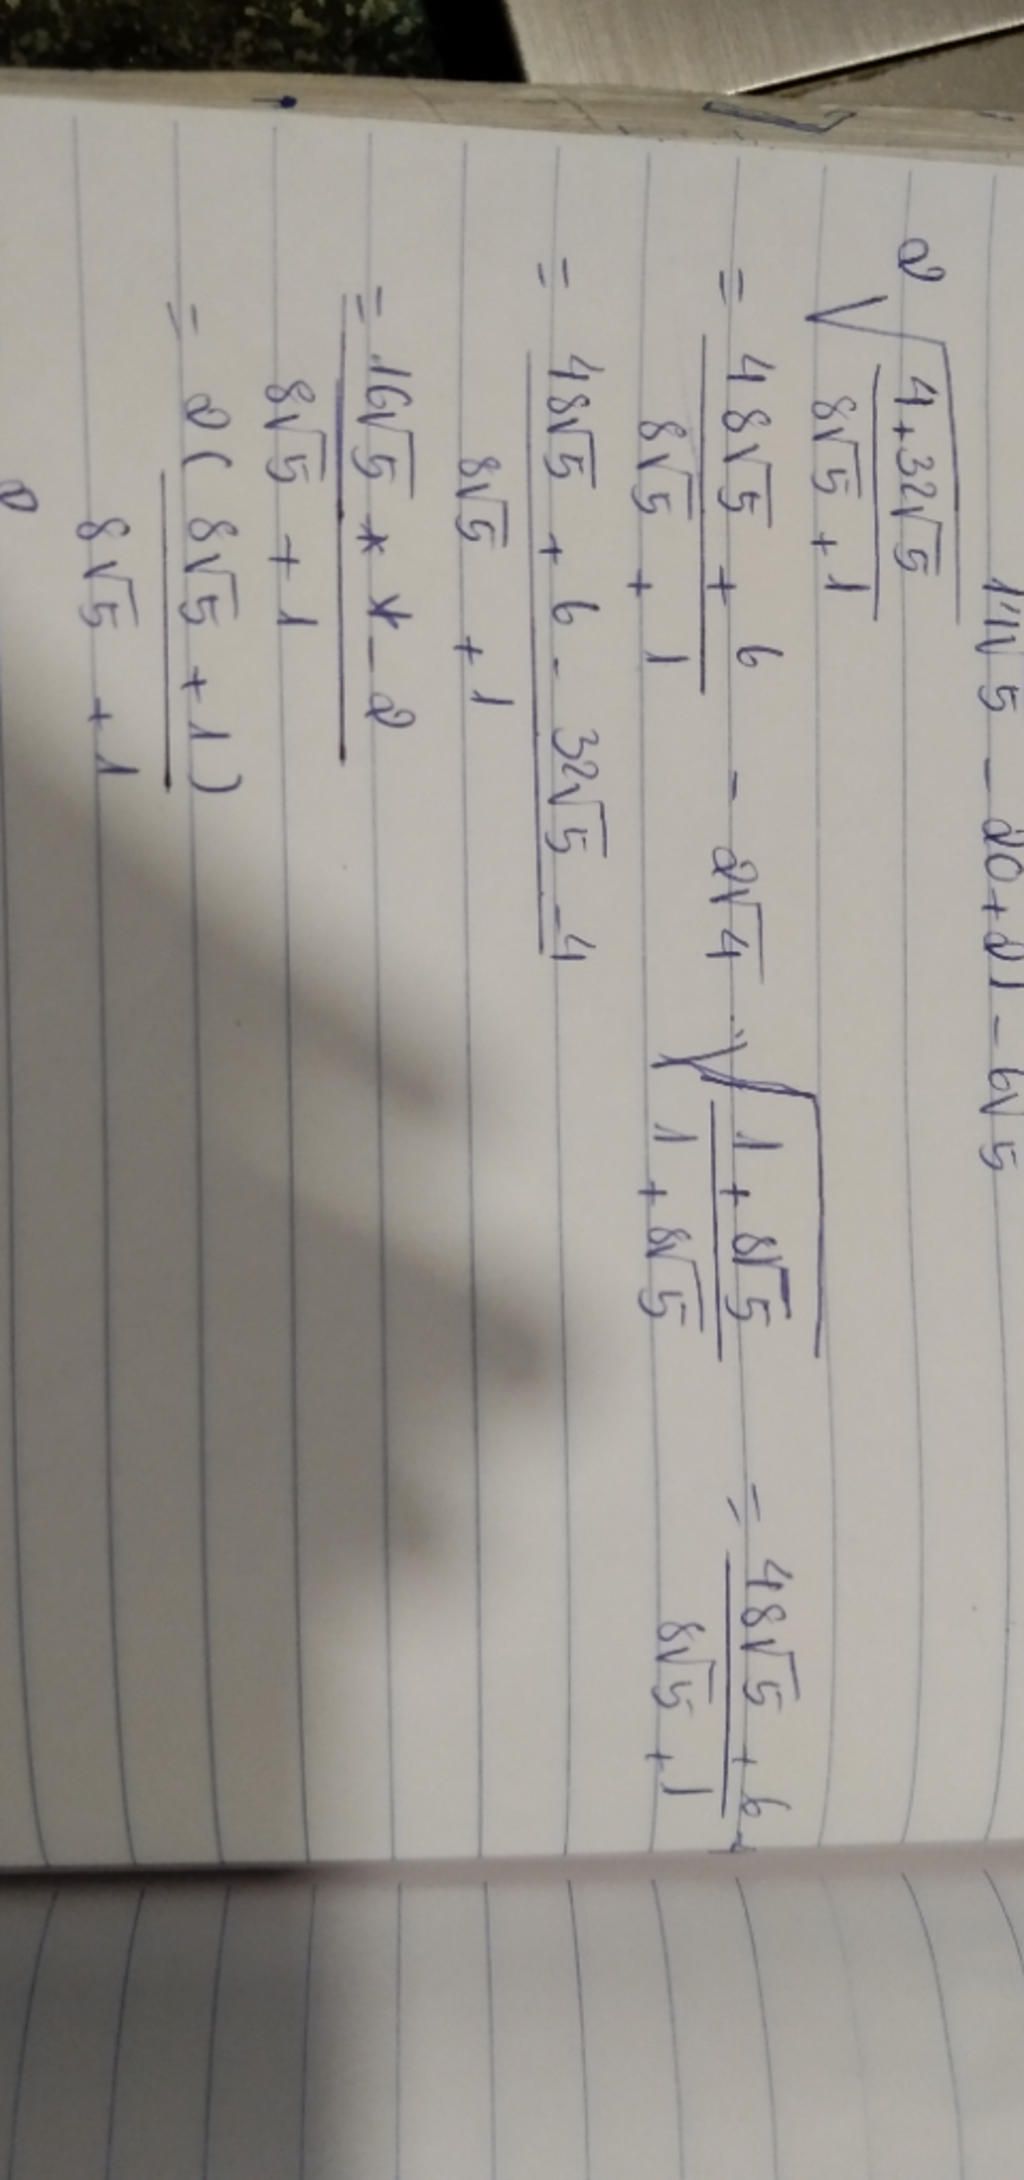 14√5 - 20 + 21 - 6√5
2√((4+32√5)/(8√5+1))
= (48√5 + 6)/(8√5 + 1) - 2√4 · √((1+8√5)/(1+8√5)) = (48√5 + 6)/(8√5 + 1) - 4
= (48√5 + 6 - 32√5 - 4)/(8√5 + 1)
= (16√5 + 2)/(8√5 + 1)
= 2(8√5 + 1)/(8√5 + 1)
2